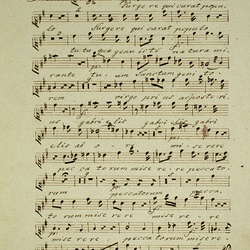 Surgere qui curat popu-
lo Surgere qui curat populo
tu quae genuisti Natura mi-
rante tuum Sanctum geni to-
rem virgo prius ac posteri-
us gabrielis gabrielis gabri
elis ab o- re mi- se re re
pec ca to rum mise re re peccato-
rum peccatorum pecca-
to rum mise re re mise re- re
mise re re pecca to rum mise re re